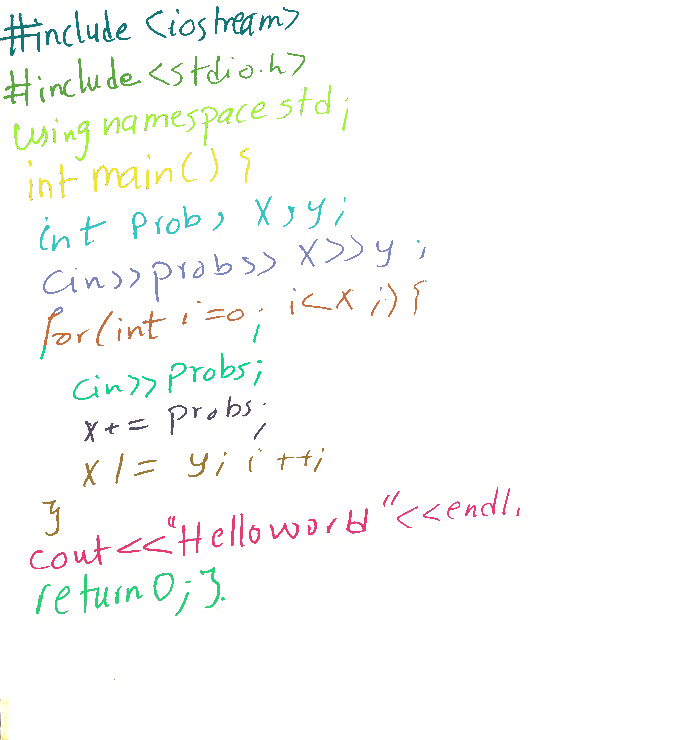 #include <iostream>
#include <stdio.h>
using namespace std;
int main() {
int prob, x, y;
cin>>probs>> x>>y;
for(int i=0; i<x;) {
cin>>probs;
x+= probs;
x /= y; i++;
}
cout<<"Hello word"<<endl.
return 0; }.